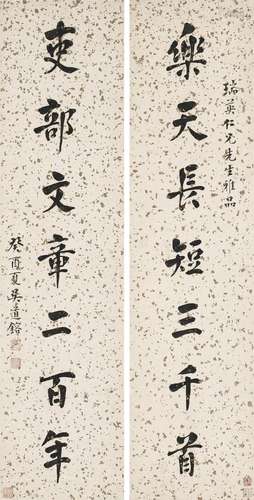 瑞英仁兄先生雅品
樂天長短三千首
吏部文章二百年
癸酉夏吳道鎔